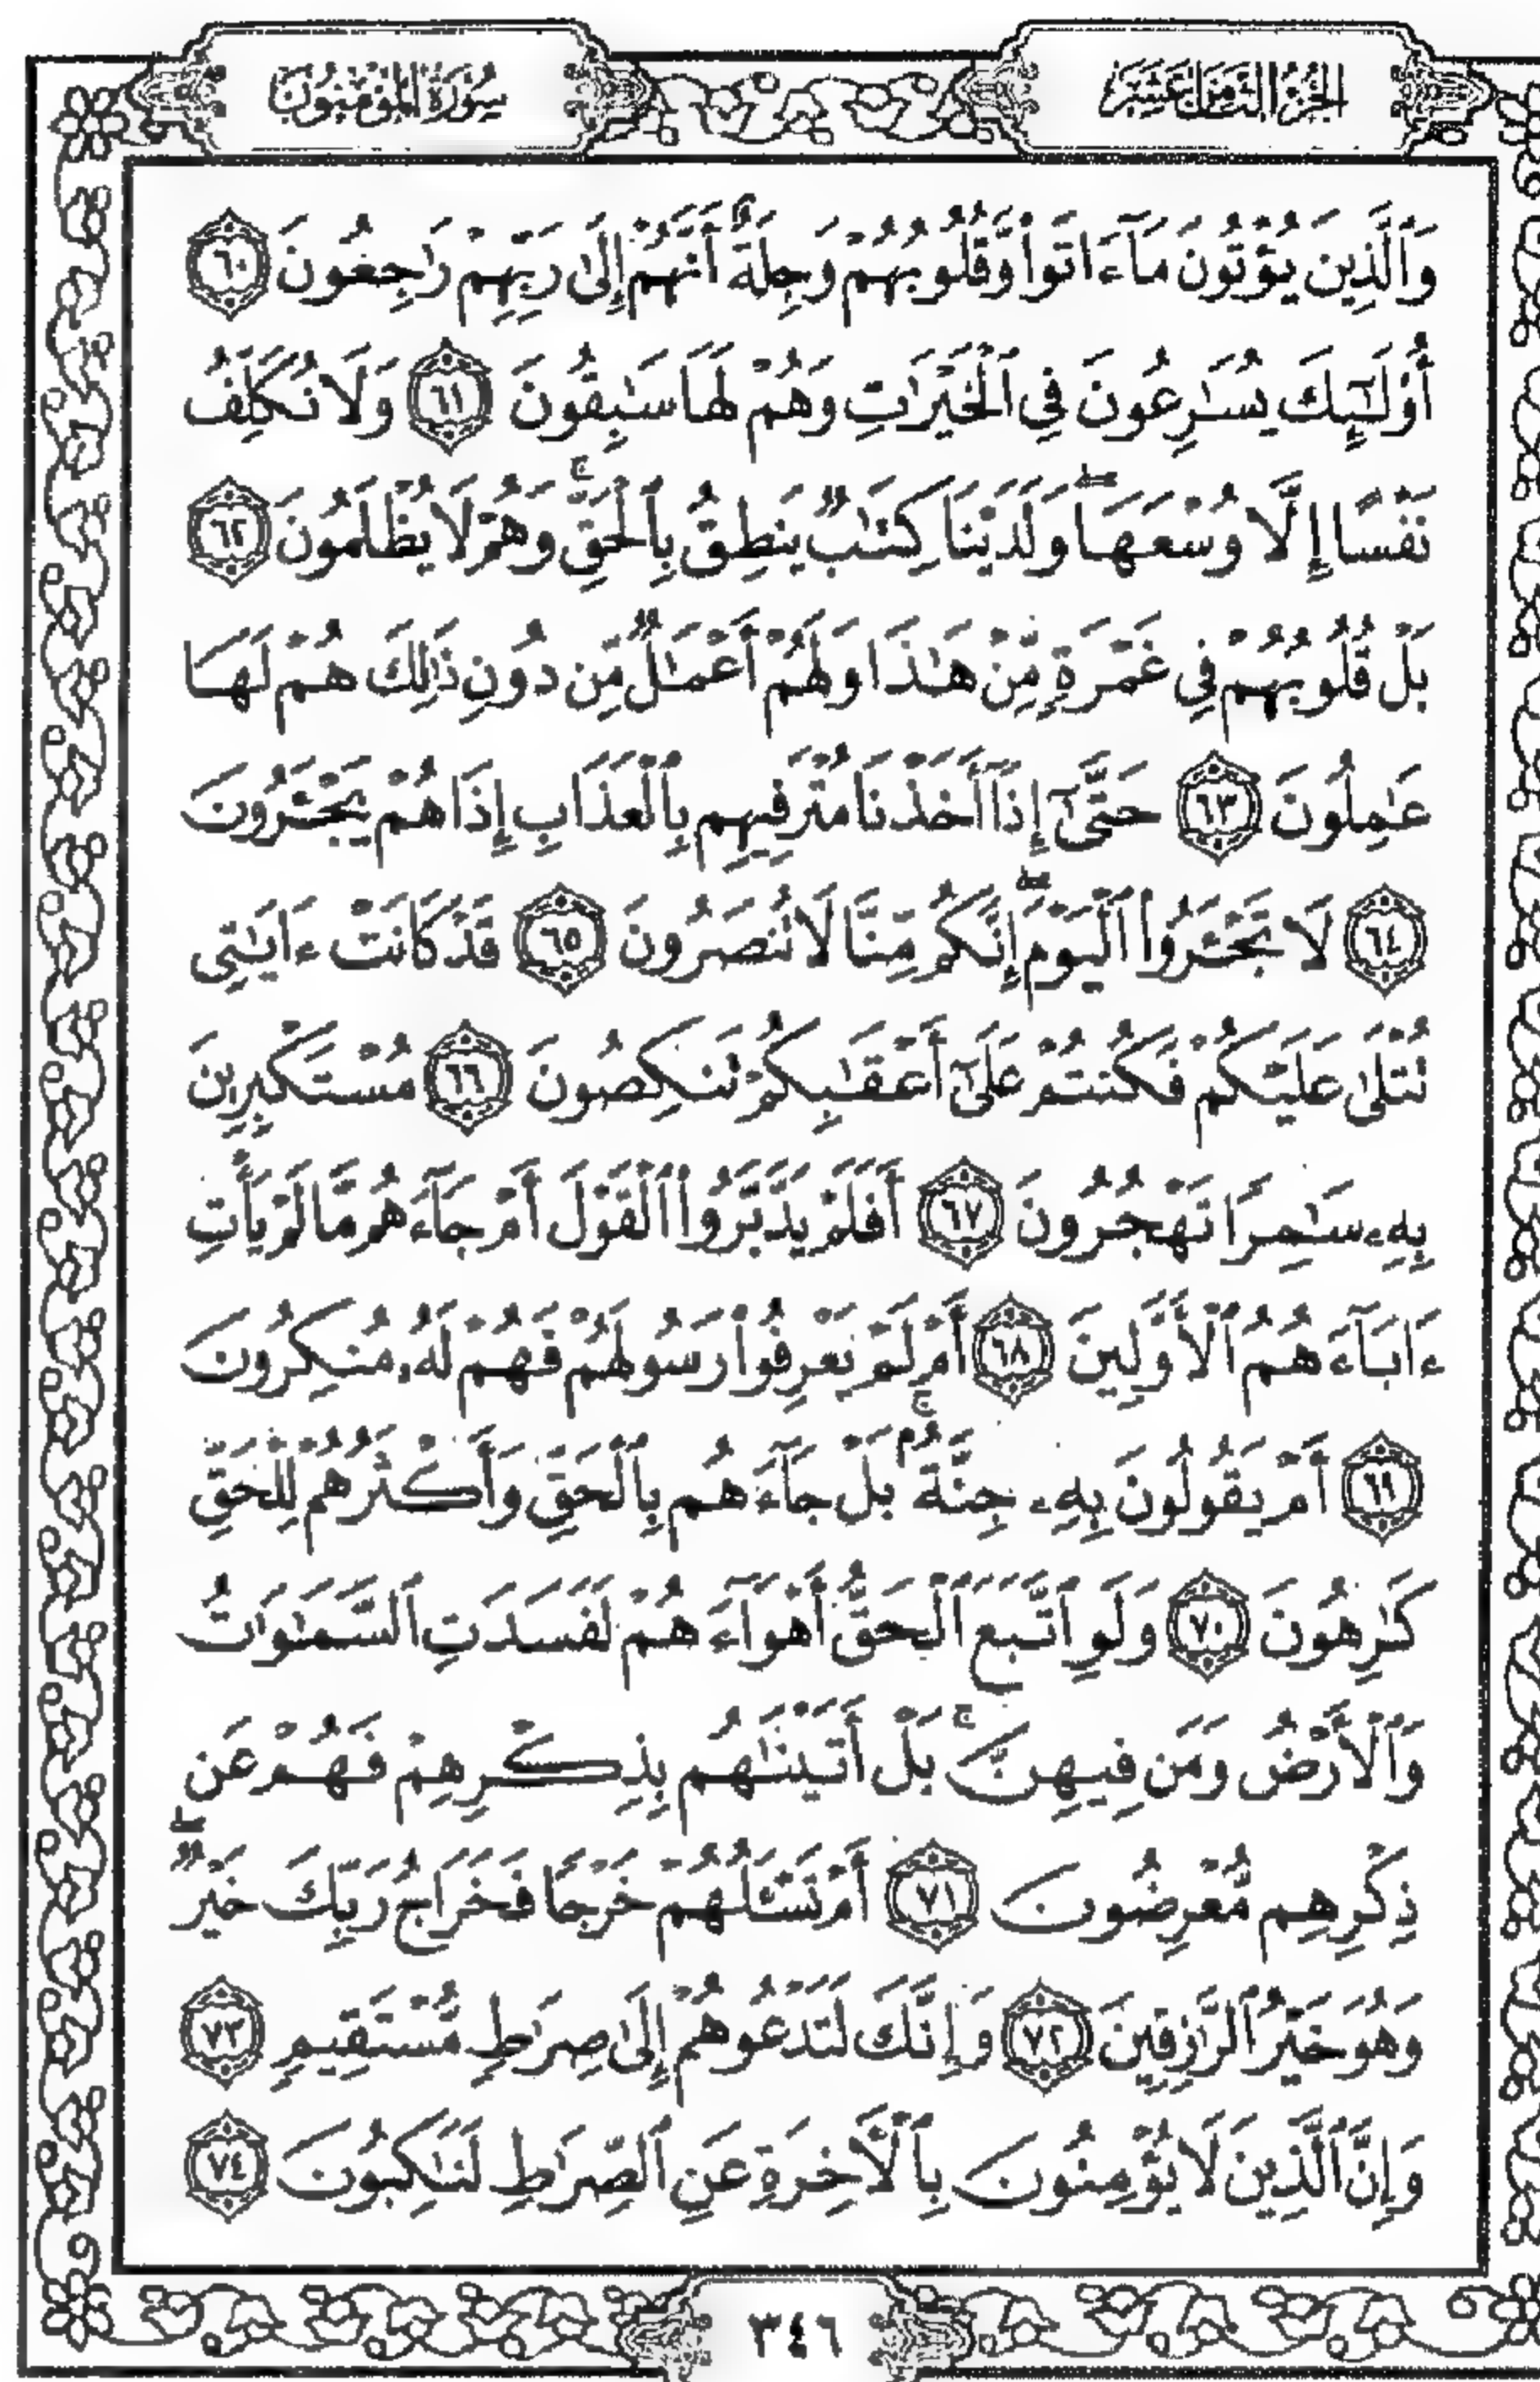 الجزء الثامن عشر
سورة المؤمنون
وَٱلَّذِينَ يُؤْتُونَ مَآ ءَاتَوا۟ وَّقُلُوبُهُمْ وَجِلَةٌ أَنَّهُمْ إِلَىٰ رَبِّهِمْ رَٰجِعُونَ ٦٠
أُو۟لَـٰٓئِكَ يُسَـٰرِعُونَ فِى ٱلْخَيْرَٰتِ وَهُمْ لَهَا سَـٰبِقُونَ ٦١ وَلَا نُكَلِّفُ
نَفْسًا إِلَّا وُسْعَهَا ۖ وَلَدَيْنَا كِتَـٰبٌ يَنطِقُ بِٱلْحَقِّ ۚ وَهُمْ لَا يُظْلَمُونَ ٦٢
بَلْ قُلُوبُهُمْ فِى غَمْرَةٍ مِّنْ هَـٰذَا وَلَهُمْ أَعْمَـٰلٌ مِّن دُونِ ذَٰلِكَ هُمْ لَهَا
عَـٰمِلُونَ ٦٣ حَتَّىٰٓ إِذَآ أَخَذْنَا مُتْرَفِيهِم بِٱلْعَذَابِ إِذَا هُمْ يَجْـَٔرُونَ
٦٤ لَا تَجْـَٔرُوا۟ ٱلْيَوْمَ ۖ إِنَّكُم مِّنَّا لَا تُنصَرُونَ ٦٥ قَدْ كَانَتْ ءَايَـٰتِى
تُتْلَىٰ عَلَيْكُمْ فَكُنتُمْ عَلَىٰٓ أَعْقَـٰبِكُمْ تَنكِصُونَ ٦٦ مُسْتَكْبِرِينَ
بِهِۦ سَـٰمِرًا تَهْجُرُونَ ٦٧ أَفَلَمْ يَدَّبَّرُوا۟ ٱلْقَوْلَ أَمْ جَآءَهُم مَّا لَمْ يَأْتِ
ءَابَآءَهُمُ ٱلْأَوَّلِينَ ٦٨ أَمْ لَمْ يَعْرِفُوا۟ رَسُولَهُمْ فَهُمْ لَهُۥ مُنكِرُونَ
٦٩ أَمْ يَقُولُونَ بِهِۦ جِنَّةٌۢ ۚ بَلْ جَآءَهُم بِٱلْحَقِّ وَأَكْثَرُهُمْ لِلْحَقِّ
كَـٰرِهُونَ ٧٠ وَلَوِ ٱتَّبَعَ ٱلْحَقُّ أَهْوَآءَهُمْ لَفَسَدَتِ ٱلسَّمَـٰوَٰتُ
وَٱلْأَرْضُ وَمَن فِيهِنَّ ۚ بَلْ أَتَيْنَـٰهُم بِذِكْرِهِمْ فَهُمْ عَن
ذِكْرِهِم مُّعْرِضُونَ ٧١ أَمْ تَسْـَٔلُهُمْ خَرْجًا فَخَرَاجُ رَبِّكَ خَيْرٌ ۖ
وَهُوَ خَيْرُ ٱلرَّٰزِقِينَ ٧٢ وَإِنَّكَ لَتَدْعُوهُمْ إِلَىٰ صِرَٰطٍ مُّسْتَقِيمٍ ٧٣
وَإِنَّ ٱلَّذِينَ لَا يُؤْمِنُونَ بِٱلْـَٔاخِرَةِ عَنِ ٱلصِّرَٰطِ لَنَـٰكِبُونَ ٧٤
٣٤٦